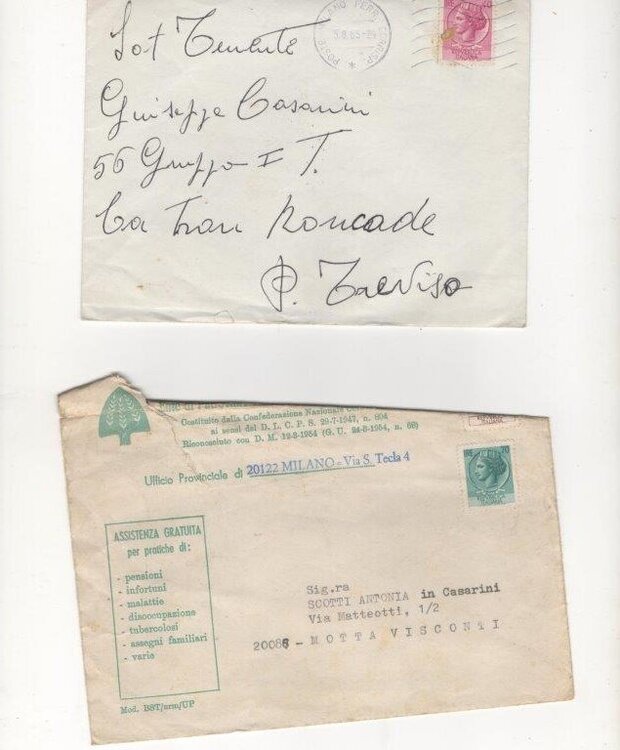 Sot Tenente
Giuseppe Casarini
56 Gruppo I T.
Ca Tron Roncade
P. Treviso
5.8.65-24
POSTE
FERR.
Costituito dalla Confederazione Nazionale
ai sensi del D. L. C. P. S. 29-7-1947, n. 804
Riconosciuto con D. M. 12-2-1954 (G. U. 24-2-1954, n. 86)
Ufficio Provinciale di 20122 MILANO - Via S. Tecla 4
70
ASSISTENZA GRATUITA
per pratiche di:
- pensioni
- infortuni
- malattie
- disoccupazione
- tubercolosi
- assegni familiari
- varie
Sig.ra
SCOTTI ANTONIA in Casarini
Via Matteotti, 1/2
20086 - MOTTA VISCONTI
Mod. BST/arm/UP